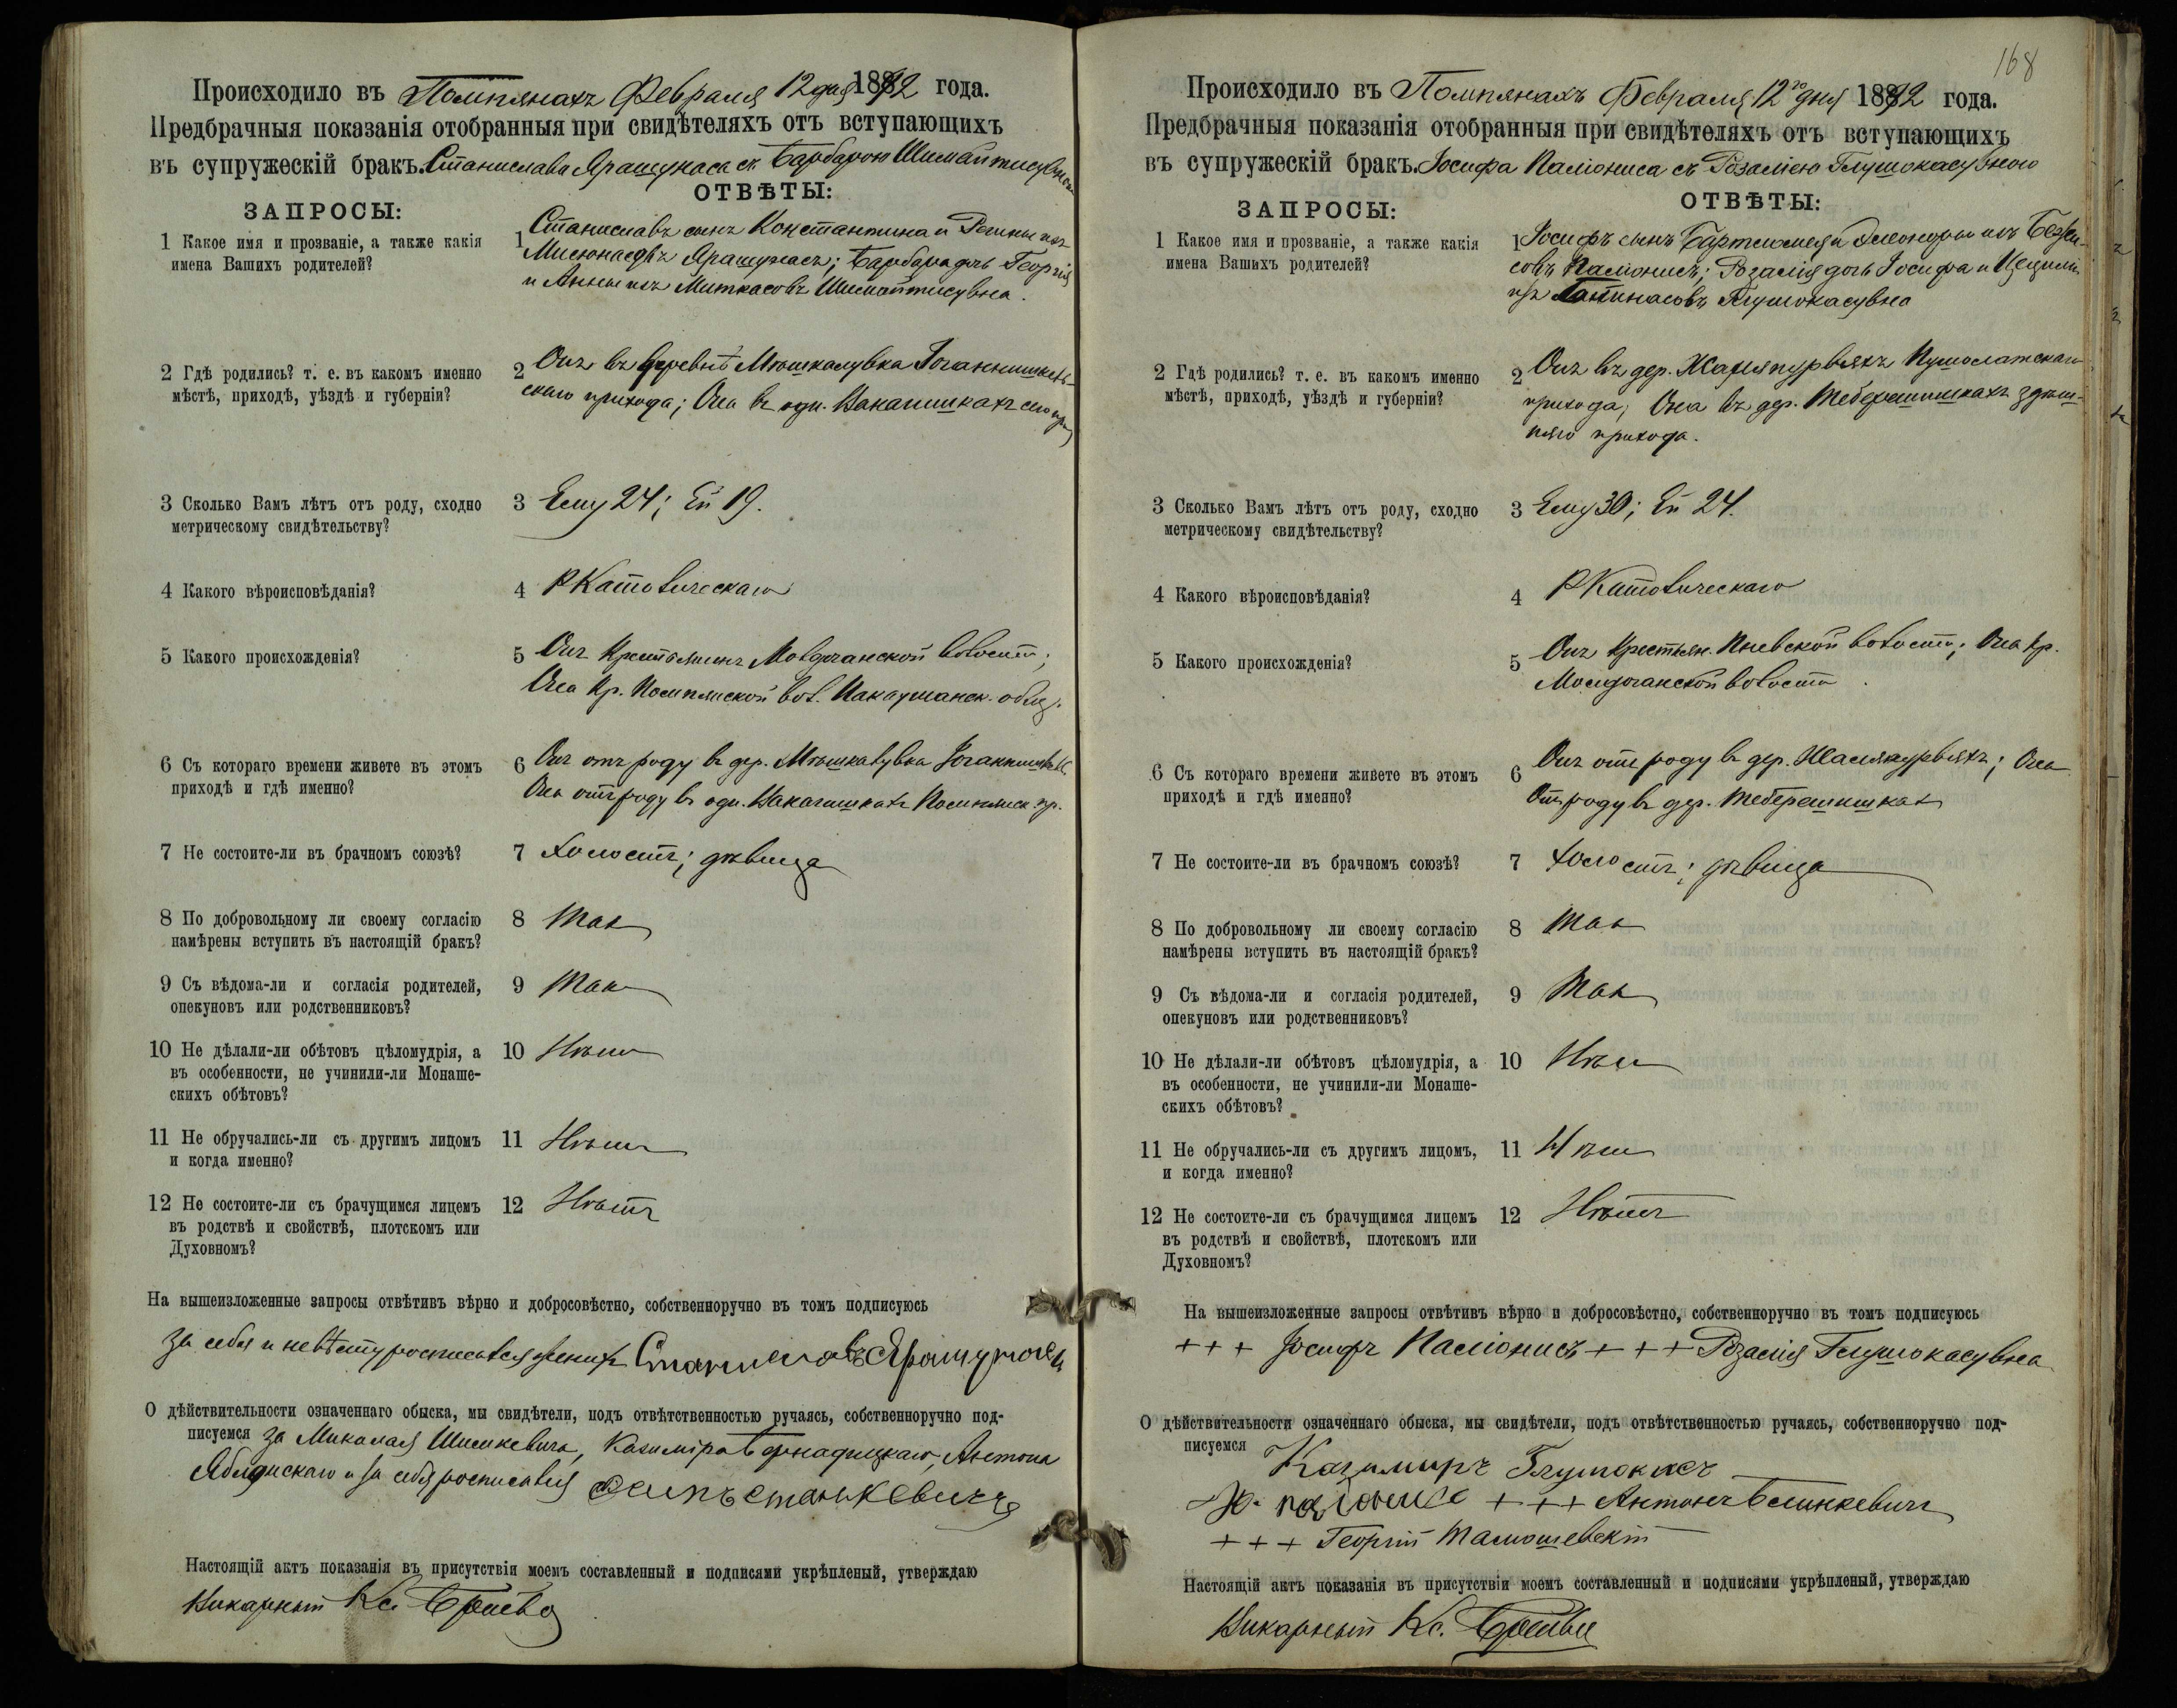 Происходило въ Помпянахъ Февраля 12 дня 1892 года.
Предбрачныя показанія отобранныя при свидѣтеляхъ отъ вступающихъ
въ супружескій бракъ. Станислава Ярашунаса съ Барбарою
ЗАПРОСЫ:
ОТВѢТЫ:
1 Какое имя и прозваніе, а также какія
имена Вашихъ родителей?
1 Станиславъ сынъ Константина и Регины изъ
Ярашунасъ; Барбара дочь Георгія
и Анны изъ Миткасовъ
2 Гдѣ родились? т. е. въ какомъ именно
мѣстѣ, приходѣ, уѣздѣ и губерніи?
2 Онъ въ деревнѣ
скаго прихода; Она въ
3 Сколько Вамъ лѣтъ отъ роду, сходно
метрическому свидѣтельству?
3 Ему 24; Ей 19.
4 Какого вѣроисповѣданія?
4 Р Католическаго
5 Какого происхожденія?
5 Онъ Крестьянинъ волости;
Она Кр. Помпянской вол.
6 Съ котораго времени живете въ этомъ
приходѣ и гдѣ именно?
6 Онъ отъ роду въ дер.
Она отъ роду въ
7 Не состоите-ли въ брачномъ союзѣ?
7 Холостъ; дѣвица
8 По добровольному ли своему согласію
намѣрены вступить въ настоящій бракъ?
8 Так
9 Съ вѣдома-ли и согласія родителей,
опекуновъ или родственниковъ?
9 Так
10 Не дѣлали-ли обѣтовъ цѣломудрія, а
въ особенности, не учинили-ли Монаше-
скихъ обѣтовъ?
10 Нѣт
11 Не обручались-ли съ другимъ лицомъ
и когда именно?
11 Нѣт
12 Не состоите-ли съ брачущимся лицемъ
въ родствѣ и свойствѣ, плотскомъ или
Духовномъ?
12 Нѣтъ
На вышеизложенные запросы отвѣтивъ вѣрно и добросовѣстно, собственноручно въ томъ подписуюсь
За себя и невѣсту росписался женихъ Станиславъ
О дѣйствительности означеннаго обыска, мы свидѣтели, подъ отвѣтственностью ручаясь, собственноручно под-
писуемся за Миколая Шимкевича, Казиміра Антона
и за себя росписался Станкевичъ
Настоящій актъ показанія въ присутствіи моемъ составленный и подписями укрѣпленый, утверждаю
Викарный Кс.
168
Происходило въ Помпянахъ Февраля 12го дня 1892 года.
Предбрачныя показанія отобранныя при свидѣтеляхъ отъ вступающихъ
въ супружескій бракъ. Іосифа Паліониса съ Розаліею Глушокасувною
ЗАПРОСЫ:
ОТВѢТЫ:
1 Какое имя и прозваніе, а также какія
имена Вашихъ родителей?
1 Іосифъ сынъ Бартломея и Элеоноры изъ
совъ Паліонисъ; Розалія дочь Іосифа и Цециліи
изъ Глушокасувна
2 Гдѣ родились? т. е. въ какомъ именно
мѣстѣ, приходѣ, уѣздѣ и губерніи?
2 Онъ въ дер. Пушолатскаго
прихода; Она въ дер. Теберашишкахъ здѣш-
няго прихода.
3 Сколько Вамъ лѣтъ отъ роду, сходно
метрическому свидѣтельству?
3 Ему 30; Ей 24.
4 Какого вѣроисповѣданія?
4 Р Католическаго
5 Какого происхожденія?
5 Онъ Крестьян. Пневской волости; Она Кр.
волости
6 Съ котораго времени живете въ этомъ
приходѣ и гдѣ именно?
6 Онъ отъ роду въ дер. ; Она
отъ роду въ дер. Теберашишках
7 Не состоите-ли въ брачномъ союзѣ?
7 Холостъ; дѣвица
8 По добровольному ли своему согласію
намѣрены вступить въ настоящій бракъ?
8 Так
9 Съ вѣдома-ли и согласія родителей,
опекуновъ или родственниковъ?
9 Так
10 Не дѣлали-ли обѣтовъ цѣломудрія, а
въ особенности, не учинили-ли Монаше-
скихъ обѣтовъ?
10 Нѣт
11 Не обручались-ли съ другимъ лицомъ,
и когда именно?
11 Нѣт
12 Не состоите-ли съ брачущимся лицемъ
въ родствѣ и свойствѣ, плотскомъ или
Духовномъ?
12 Нѣтъ
На вышеизложенные запросы отвѣтивъ вѣрно и добросовѣстно, собственноручно въ томъ подписуюсь
+++ Іосифъ Паліонисъ +++ Розалія Глушокасувна
О дѣйствительности означеннаго обыска, мы свидѣтели, подъ отвѣтственностью ручаясь, собственноручно под-
писуемся
Казимиръ Глушокасъ
+++ Антонъ
+++ Георгій
Настоящій актъ показанія въ присутствіи моемъ составленный и подписями укрѣпленый, утверждаю
Викарный Кс.